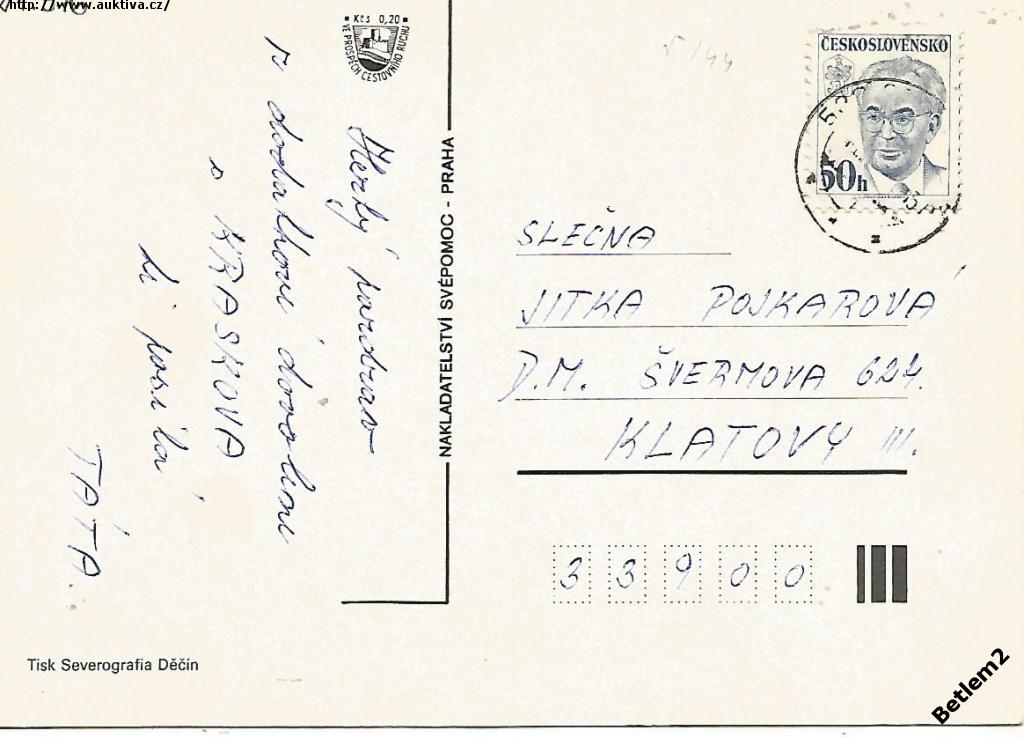 http://www.auktiva.cz/
Kčs 0,20
VE PROSPĚCH CESTOVNÍHO RUCHU
ČESKOSLOVENSKO
50h
Hezký pozdrav
z dodatkové dovolené
KRASKOVA
ti posílá
TÁTA.
NAKLADATELSTVÍ SVÉPOMOC - PRAHA
SLEČNA
JITKA POJKAROVÁ
D.M. ŠVERMOVA 624.
KLATOVY III.
33900
Tisk Severografia Děčín
Betlem2